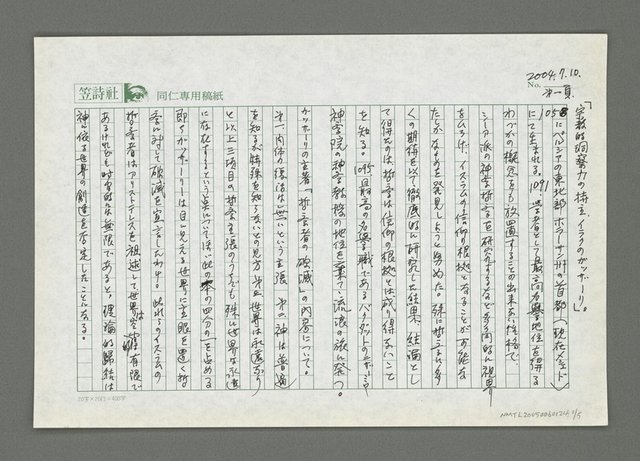 2004.7.10.
No. 第一頁
笠詩社 同仁専用稿紙
「宗教的洞察力の持主、イラクのガッザーリー」
1058にペルシアの東北部ホラーサン州の首都
にて生まれる。1091 学者として最高の名誉地位を得る
わづかの概念をも放置することの出来ない性格で、
シーア派の神学哲学を研究するなど多角的な視界
をひろげ、イスラムの信仰の根拠となることが可能な
ものを発見しようと努めた。殊に哲学に多
くの期待を以て徹底的に研究した結果、結論とし
て得たのは、哲学は信仰の根拠とは成り得ないこと
を知る。1095 最高の名誉職であるバグダットの
神学院の神学教授の地位を棄て、流浪の旅に発つ。
ガッザーリーの主著「哲学者の破滅」の内容について。
第一、肉体の復活は無いという主張 第二、神は普遍
を知るが特殊を知らないとの見方 第三、世界は永遠なり
と以上三項目の哲学主張のうちでも殊に世界は永遠
に存在するという点については、此の書の四分の一を占める
即ちガッザーリーは目に見える世界に主眼を置く哲
学に対して破滅を宣言したわけ。此れらイスラムの
哲学者はアリストテレスを祖述して世界は空間 有限で
あるけれども時間的には無限であると、理論的帰結は
神に依る世界の創造を否定したことになる。
20字×20行=400字
NMTL20050060124 1/5